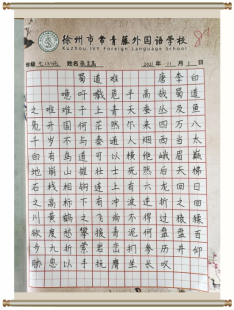 徐州市常青藤外国语学校
Xuzhou IVY Foreign Language School
姓名
2021年11月1日
蜀道难 唐李白
噫吁嚱危乎高哉蜀道
之难难于上青天蚕丛及鱼
凫开国何茫然尔来四万八
千岁不与秦塞通人烟西当太
白有鸟道可以横绝峨眉巅
地崩山摧壮士死然后天梯
石栈相钩连上有六龙回日
之高标下有冲波逆折之回
川黄鹤之飞尚不得过猿猱
欲度愁攀援青泥何盘盘百
步九折萦岩峦扪参历井仰
胁息以手抚膺坐长叹